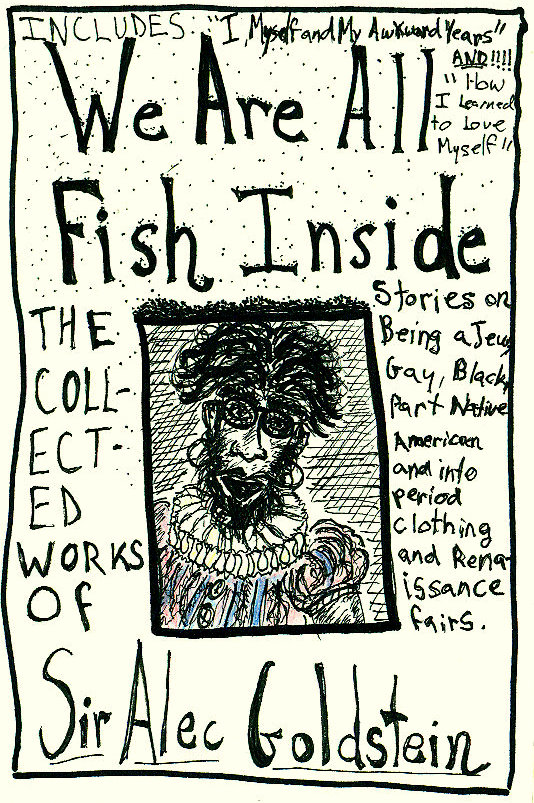 INCLUDES: "I, Myself and My Awkward Years"
AND!!!!
"How
I Learned
to Love
Myself"
We Are All
Fish Inside
THE
COLL-
ECT-
ED
WORKS
OF
Stories on
Being a Jew,
Gay, Black,
Part Native
American
and into
period
clothing
and Rena-
issance
fairs.
Sir Alec Goldstein